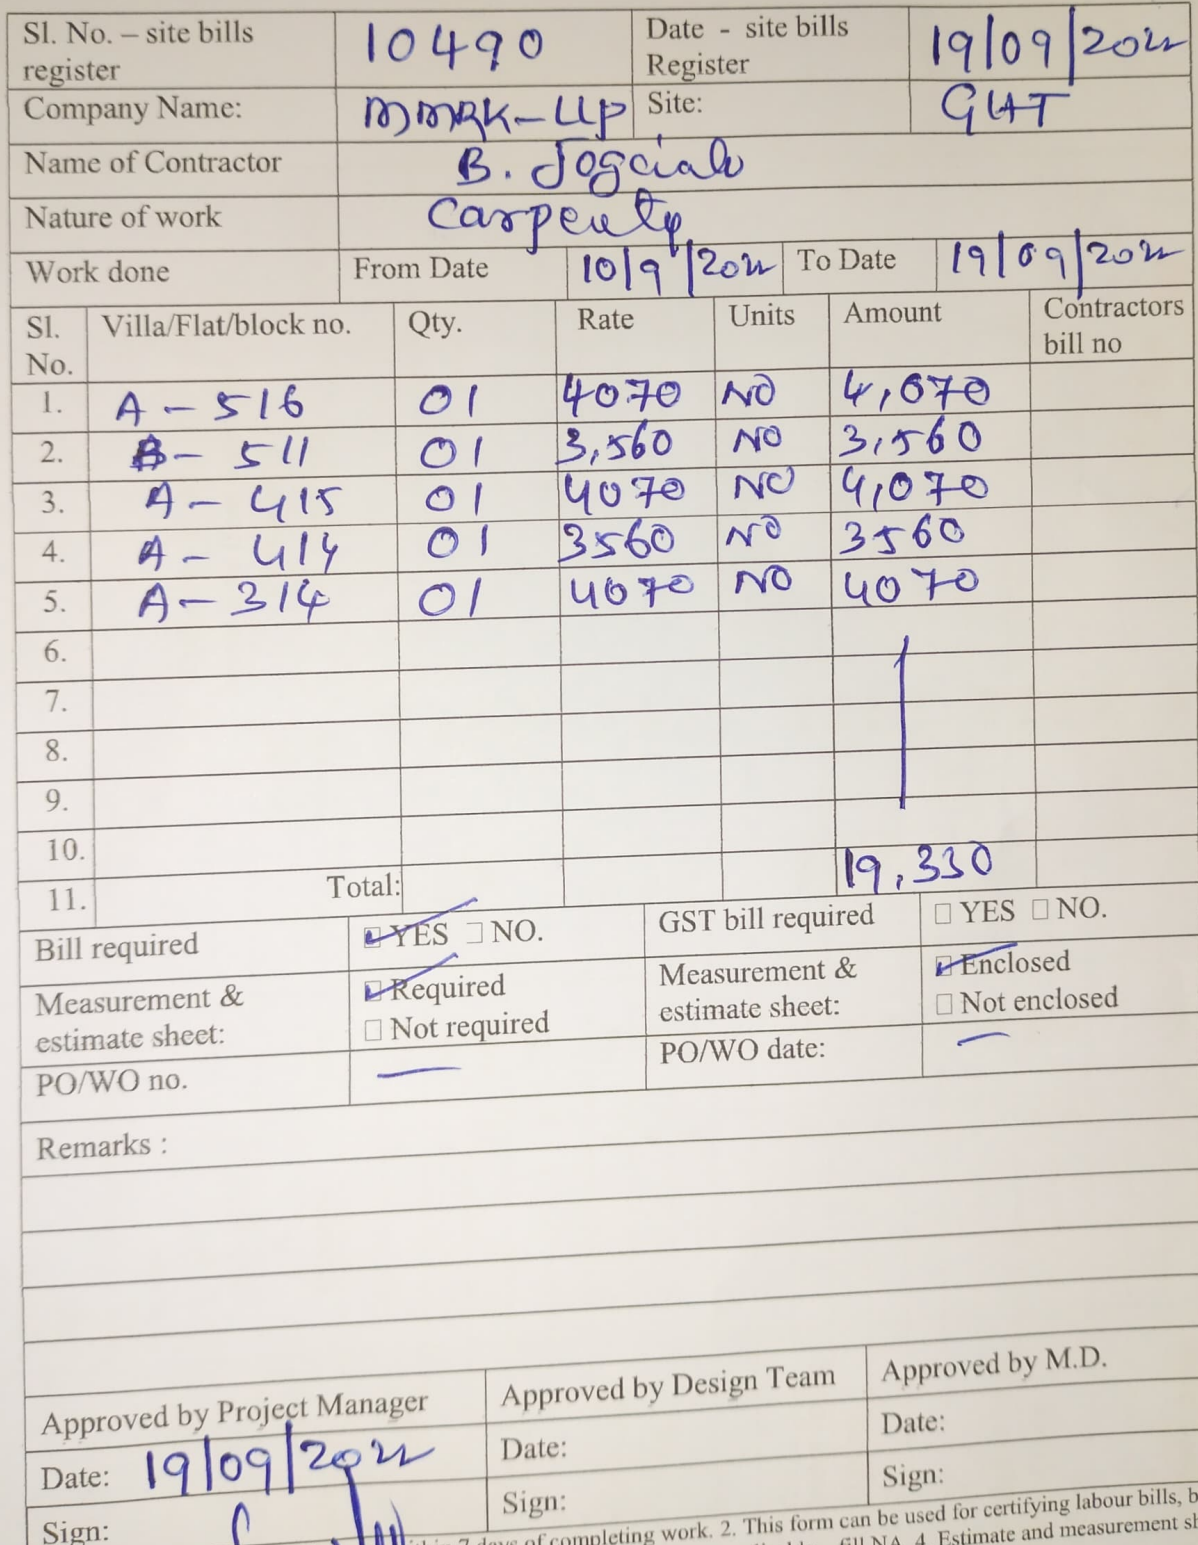 Sl. No. – site bills register 10490 Date - site bills Register 19/09/2022
Company Name: MMRK-LLP Site: GHT
Name of Contractor B. Jogaiah
Nature of work Carpenty
Work done From Date 10/9/2022 To Date 19/09/2022
Sl. No. Villa/Flat/block no. Qty. Rate Units Amount Contractors bill no
1. A - 516 01 4070 NO 4,070
2. B - 511 01 3,560 NO 3,560
3. A - 415 01 4070 NO 4,070
4. A - 414 01 3560 NO 3560
5. A - 314 01 4070 NO 4070
6.
7.
8.
9.
10.
11. Total: 19,330
Bill required YES NO. GST bill required YES NO.
Measurement & estimate sheet: Required Not required Measurement & estimate sheet: Enclosed Not enclosed
PO/WO no. — PO/WO date: —
Remarks :
Approved by Project Manager Approved by Design Team Approved by M.D.
Date: 19/09/2022 Date: Date:
Sign: Sign: Sign:
7 days of completing work. 2. This form can be used for certifying labour bills, b
NA. 4. Estimate and measurement sh